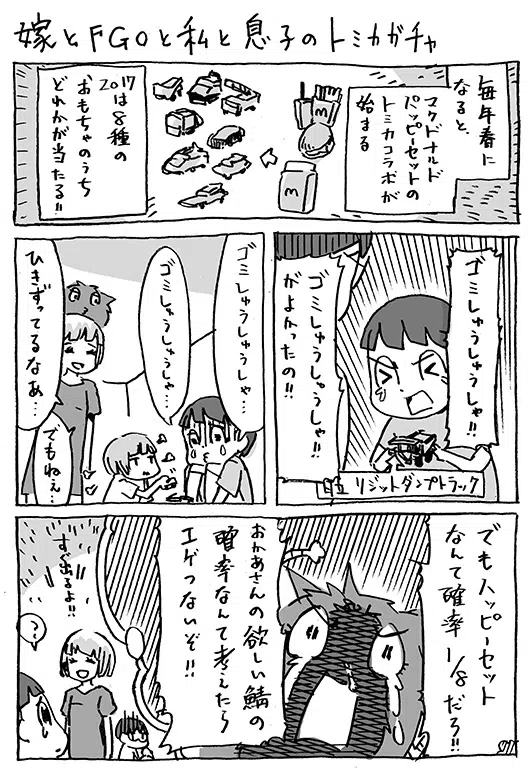 嫁とFGOと私と息子のトミカガチャ
毎年春に
なると、
マクドナルド
ハッピーセットの
トミカコラボが
始まる
2017は8種の
おもちゃのうち
どれかが当たる!!
ゴミしゅうしゅうしゃ!!
ゴミしゅうしゅうしゃ!!
がよかったの!!
日立 リジットダンプトラック
ゴミしゅうしゅうしゃ…
ゴミしゅうしゅうしゃ…
ひきずってるなぁ…
でもねぇ…
でもハッピーセット
なんて確率1/8だろ!!
おかあさんの欲しい鯖の
確率なんて考えたら
エゲつないぞ!!
すぐ出るよ!!
?